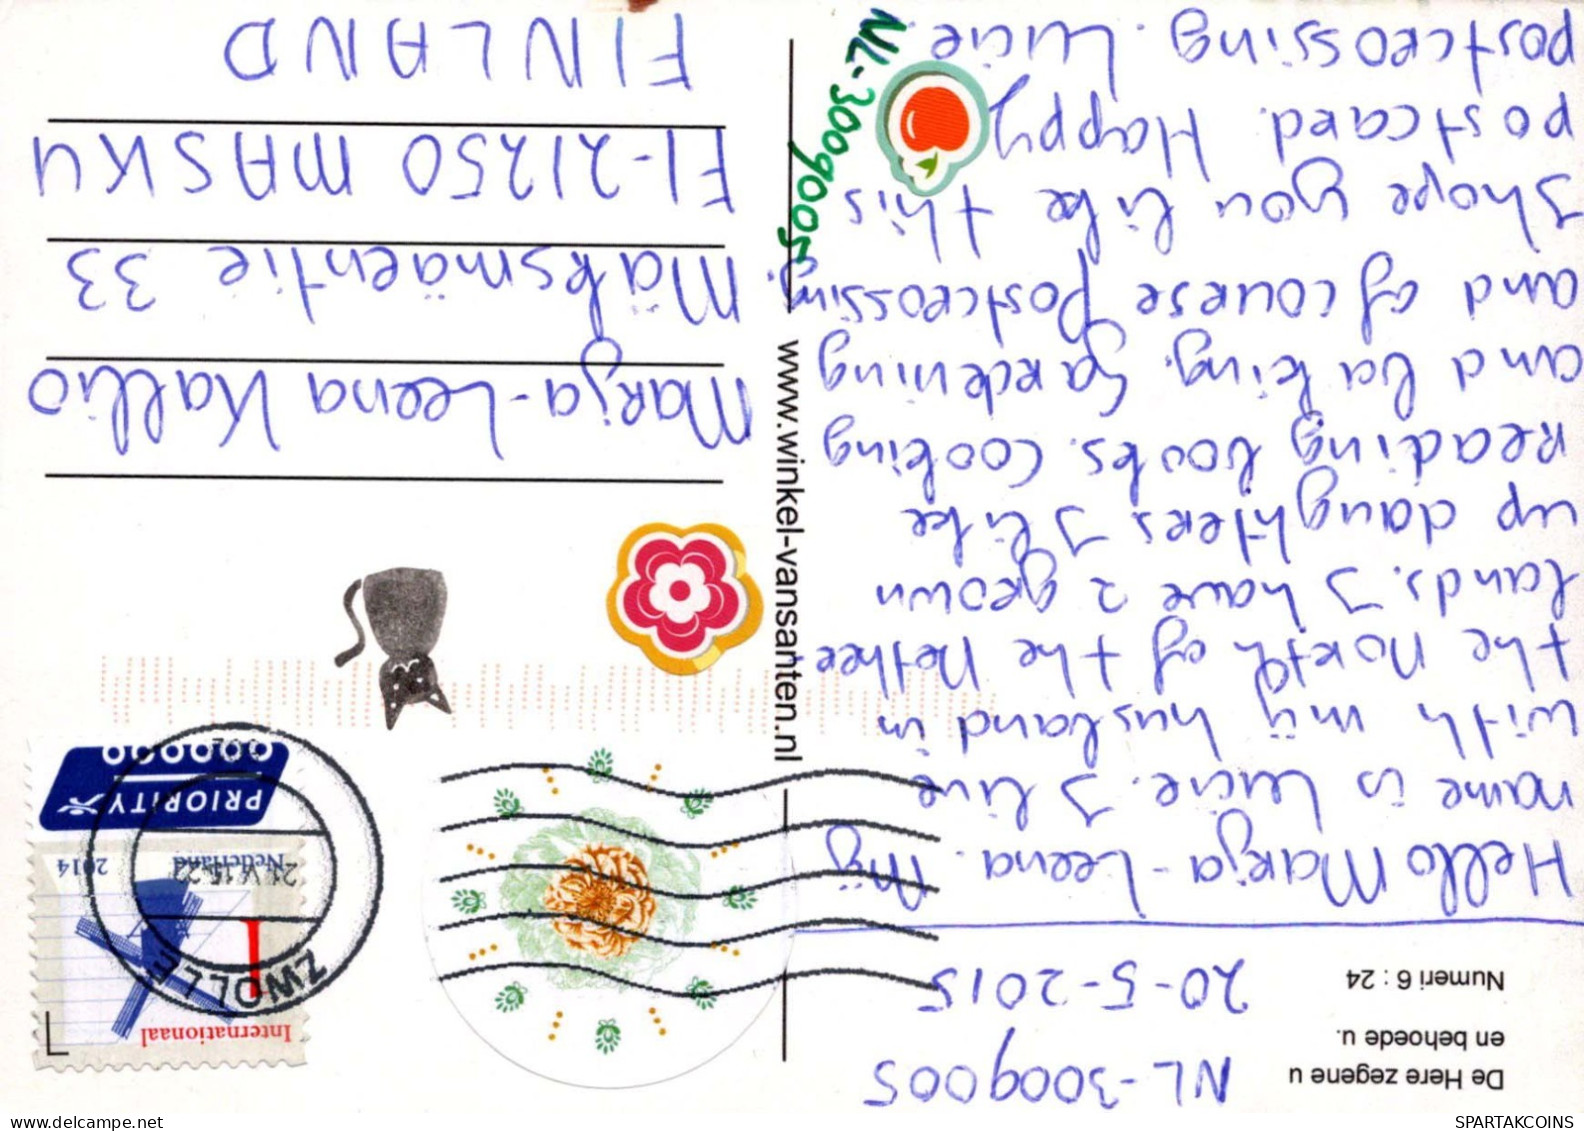 De Here zegene u
en behoede u.
Numeri 6 : 24
NL-3009005
20-5-2015
Hello Marja-Leena. My
name is Lucie. I live
with my husband in
the North of the Nether-
lands. I have 2 grown
up daughters. I like
reading books. Cooking
and baking. Gardening
and of course Postcrossing.
I hope you like this
postcard. Happy
postcrossing. Lucie.
NL-3009005
www.winkel-vansanten.nl
Internationaal
1
Nederland 2014
PRIORITY
ZWOLLE
21.V.15-22
Marja-Leena Kallio
Mäksmäentie 33
FI-21250 MASKU
FINLAND
SPARTAKCOINS.COM